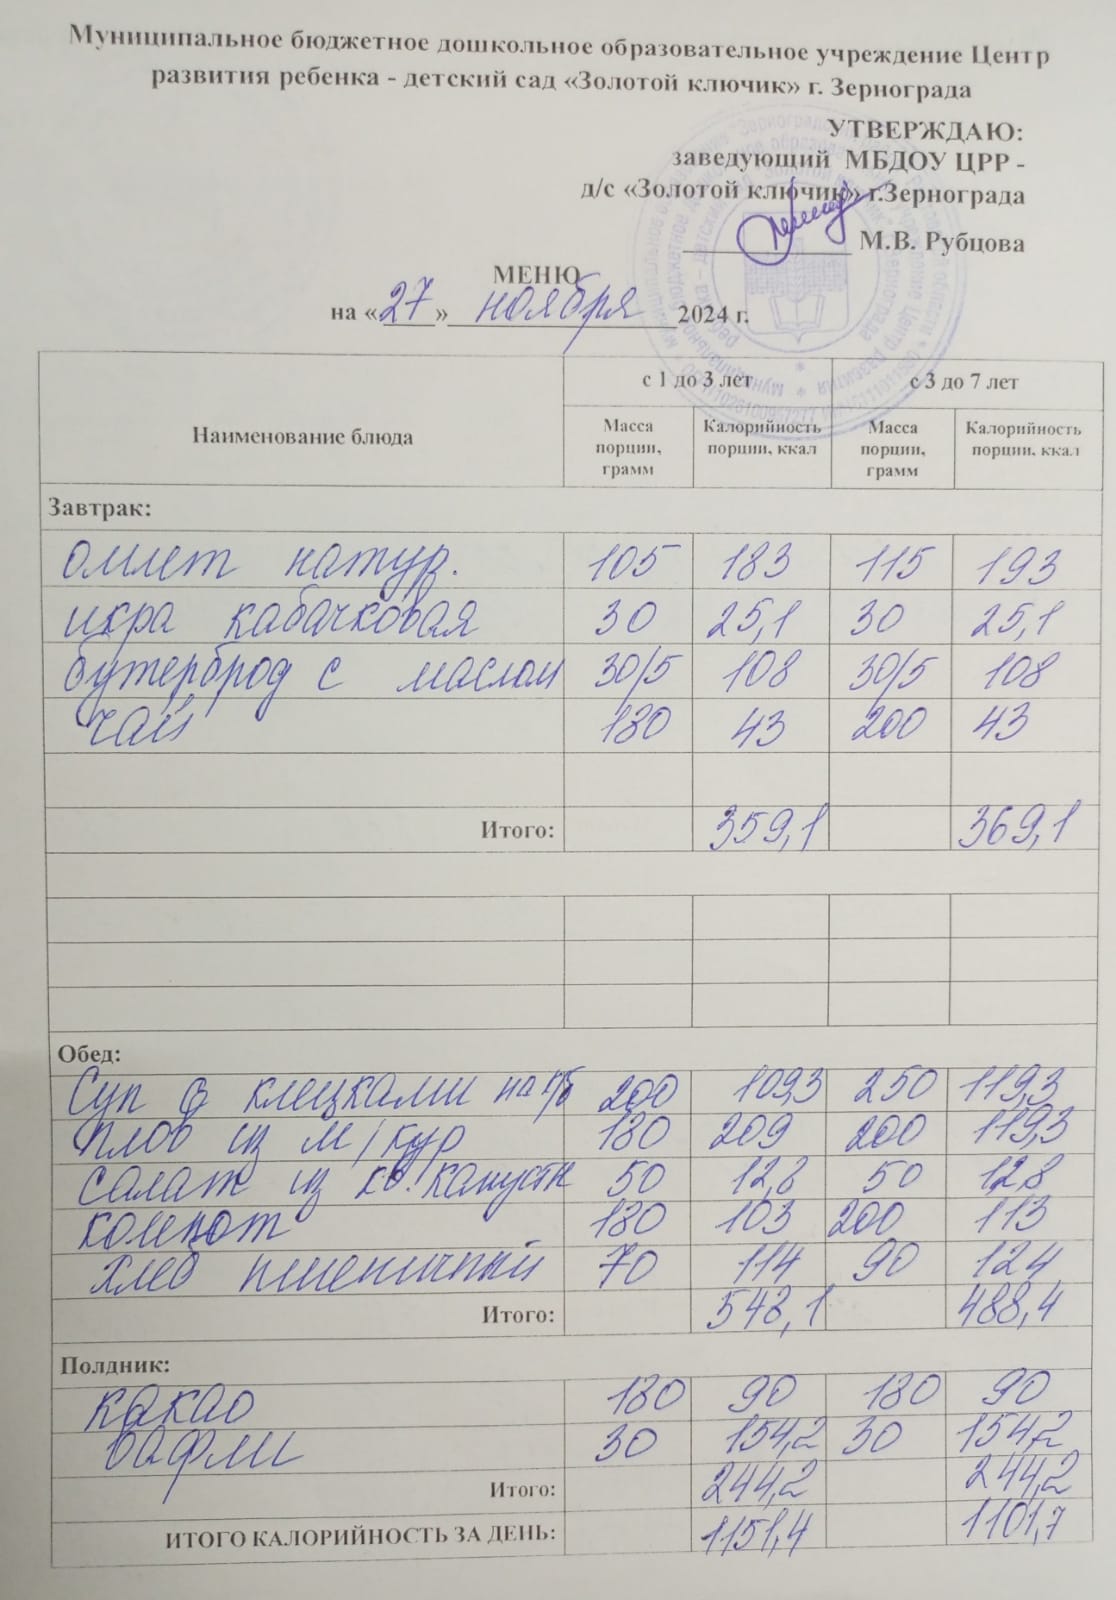 Муниципальное бюджетное дошкольное образовательное учреждение Центр
развития ребенка - детский сад «Золотой ключик» г. Зернограда
УТВЕРЖДАЮ:
заведующий МБДОУ ЦРР -
д/с «Золотой ключик» г.Зернограда
М.В. Рубцова
МЕНЮ
на «27» ноября 2024 г.
Наименование блюда с 1 до 3 лет с 3 до 7 лет
Масса Калорийность Масса Калорийность
порции, порции, ккал порции, порции, ккал
грамм грамм
Завтрак:
омлет натур. 105 183 115 193
икра кабачковая 30 25,1 30 25,1
бутерброд с маслом 30/5 108 30/5 108
чай 180 43 200 43
Итого: 359,1 369,1
Обед:
Суп с клецками на к/б 200 109,3 250 119,3
плов из м/кур 180 209 200 119,3
салат из кв. капусты 50 12,8 50 12,8
компот 180 103 200 113
хлеб пшеничный 70 114 90 124
Итого: 548,1 488,4
Полдник:
какао 180 90 180 90
вафли 30 154,2 30 154,2
Итого: 244,2 244,2
ИТОГО КАЛОРИЙНОСТЬ ЗА ДЕНЬ: 1151,4 1101,7